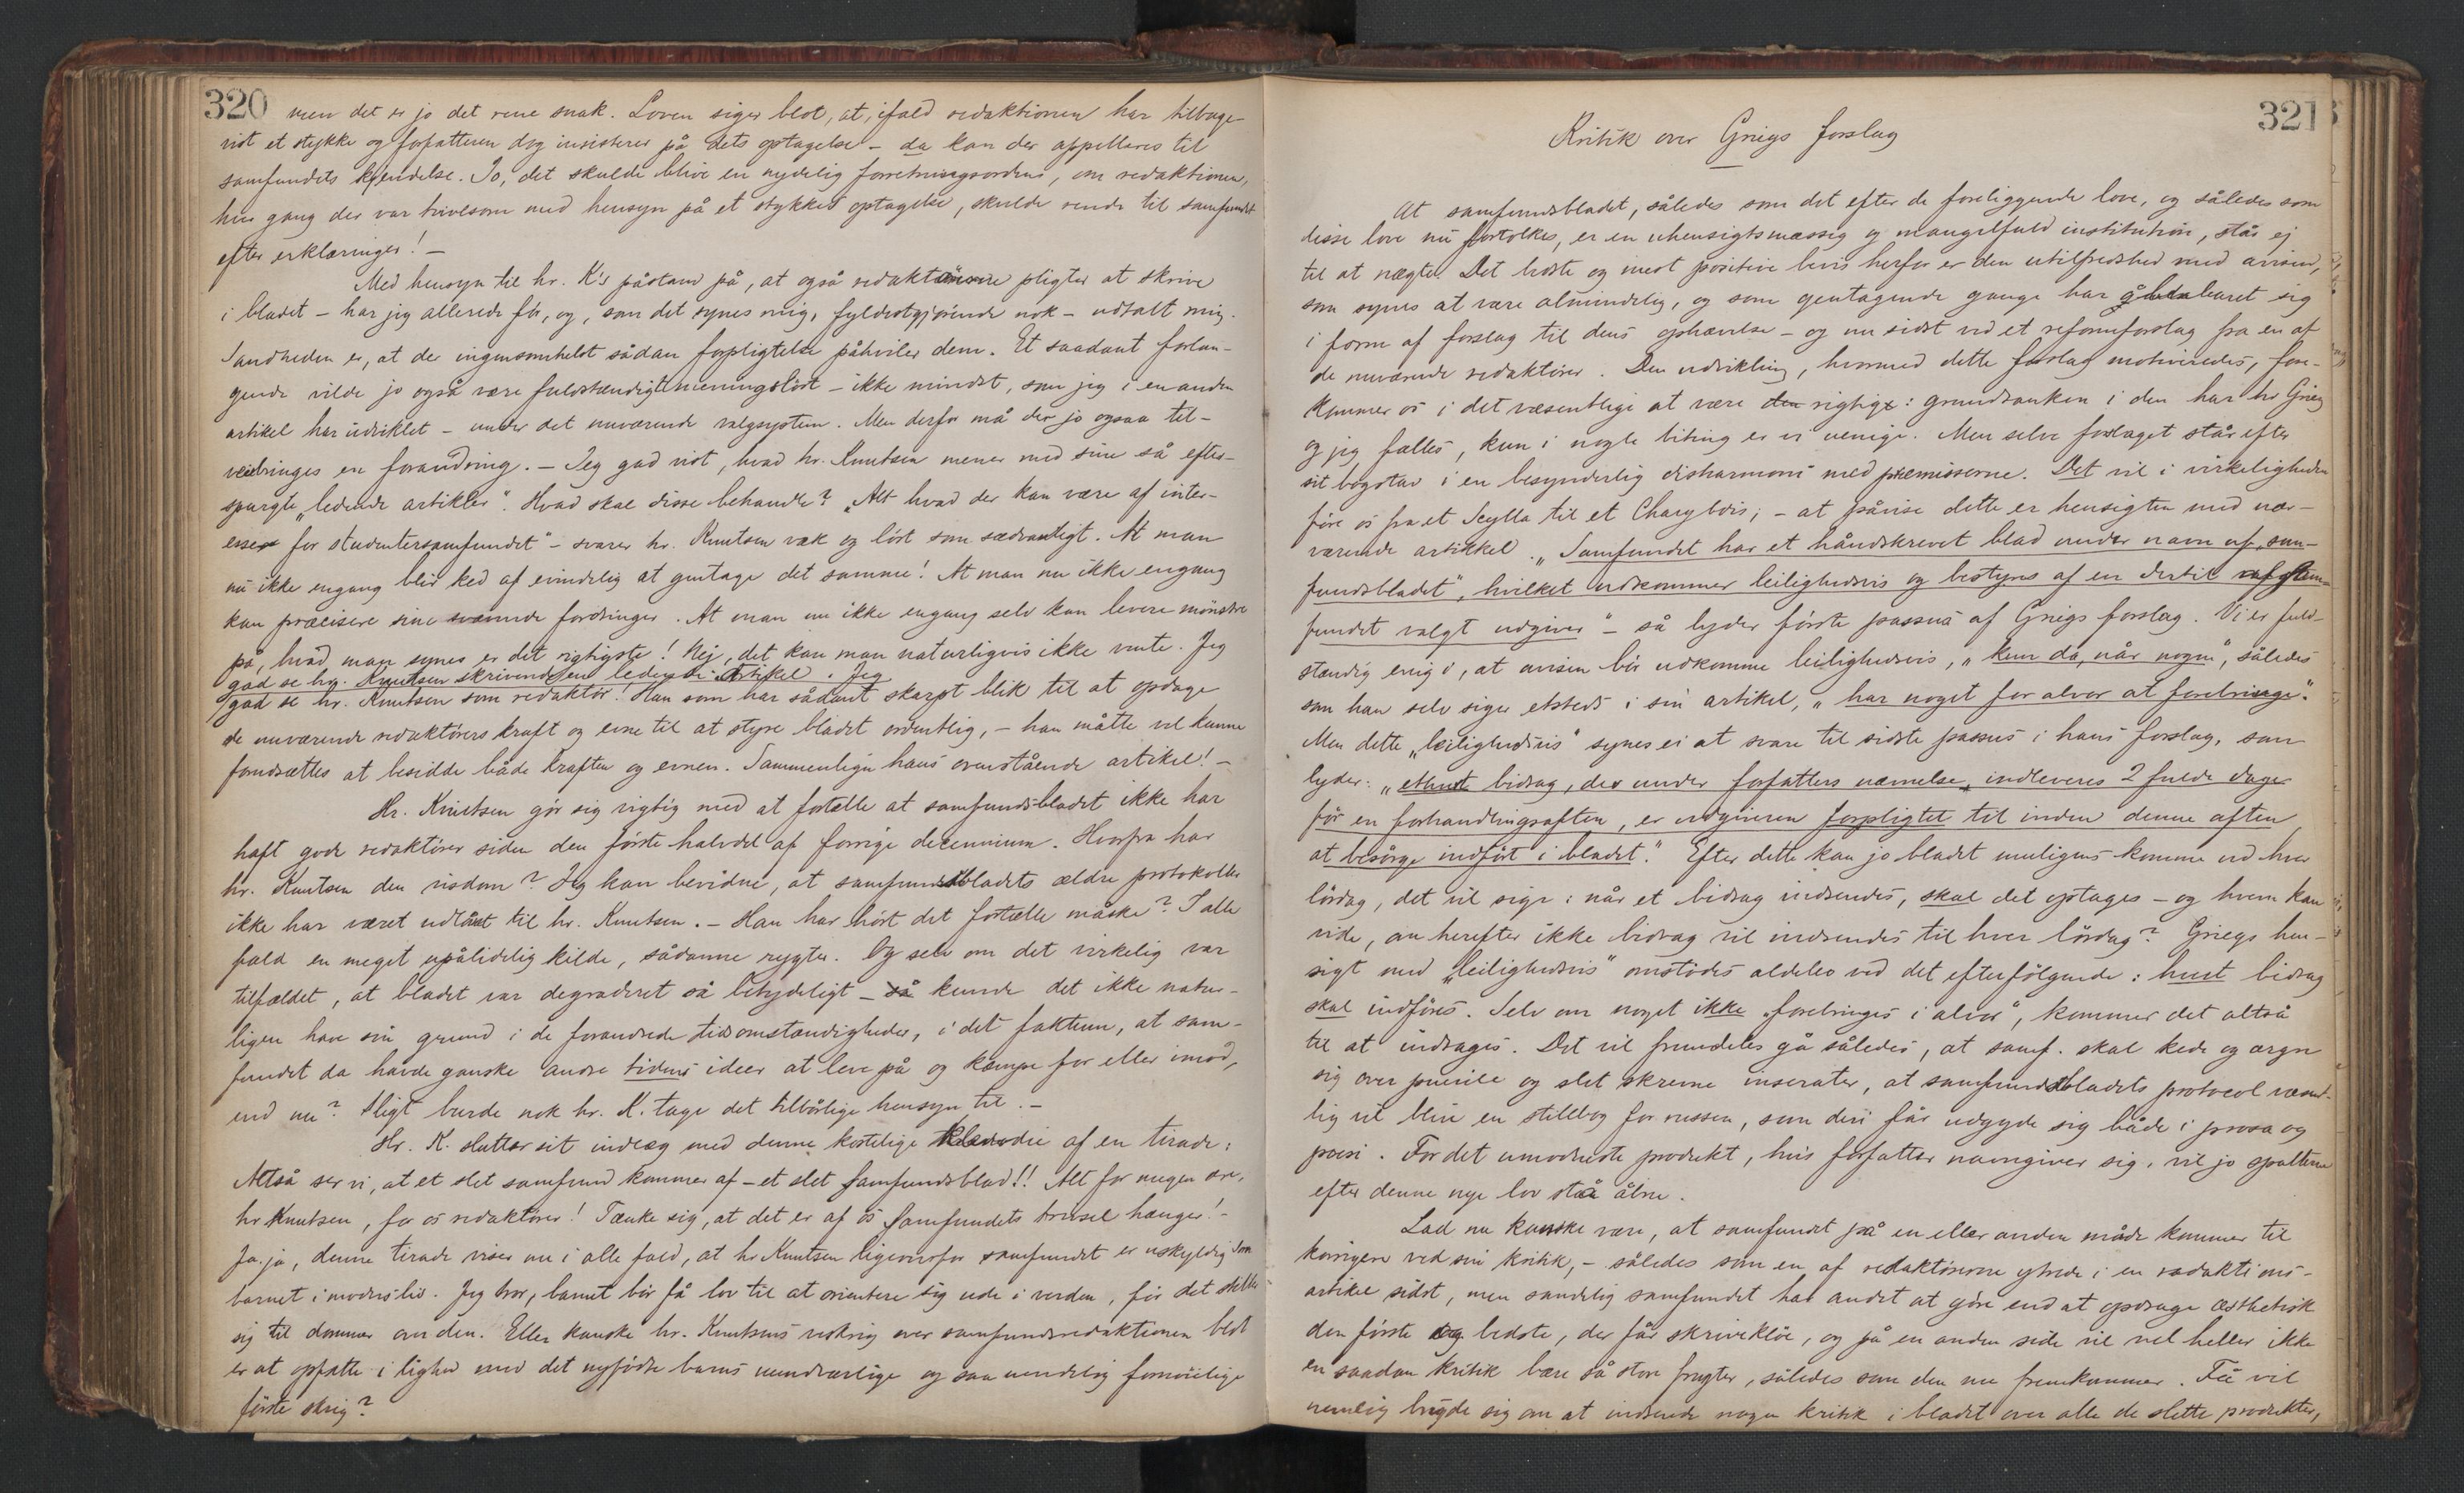 320
men det er jo det rene snak. Loven siger blot, at, ifald redaktionen har tilbage-
vist et stykke og forfatteren dog insisterer på dets optagelse – da kan der appelleres til
samfundets kjendelse. Jo, det skulde blive en nydelig forretningsorden, om redaktionen,
hver gang der var tvivlsom med hensyn på et stykkes optagelse, skulde rende til samfundet
efter erklæringer! –
Med hensyn til hr. K's påstand på, at også redaktörerne pligter at skrive
i bladet – har jeg allerede för, og, som det synes mig, fyldestgjörende nok – udtalt mig.
Sandheden er, at der ingensomhelst sådan forpligtelse påhviler dem. Et saadant forlan-
gende vilde jo også være fuldstændigt meningslöst – ikke mindst, som jeg i en anden
artikel har udviklet – under det nuværende valgsystem. Men derfor må der jo ogsaa til-
veiebringes en forandring. – Jeg gad vist, hvad hr. Knutsen mener med sine så efter-
spurgte „ledende artikler". Hvad skal disse behandle? „Alt hvad der kan være af inter-
esse for studentersamfundet" – svarer hr. Knutsen væk og löst som sædvanligt. At man
nu ikke engang blir ked af evindelig at gentage det samme! At man nu ikke engang
kan præcisere sine svævende fordringer. At man nu ikke engang selv kan levere mönstre
på, hvad man synes er det rigtigste! Nej, det kan man naturligvis ikke vente. Jeg
gad se hr. Knutsen skrivende en ledende artikel. Jeg
gad se hr. Knutsen som redaktör! Han som har sådant skarpt blik til at opdage
de nuværende redaktörers kraft og evne til at styre bladet ordentlig, – han måtte vel kunne
forudsættes at besidde både kraften og evnen. Sammenlign hans ovenstående artikel! –
Hr. Knutsen gör sig vigtig med at fortælle at samfundsbladet ikke har
haft gode redaktörer siden den förste halvdel af forrige decennium. Hvorfra har
hr. Knutsen den visdom? Jeg kan bevidne, at samfundsbladets ældre protokoller
ikke har været udlånt til hr. Knutsen. – Han har hört det fortælle måske? I alle
fald en meget upålidelig kilde, sådanne rygter. Og selv om det virkelig var
tilfældet, at bladet var degraderet så betydeligt – så kunde det ikke natur-
ligen have sin grund i de forandrede tidsomstændigheder, i det faktum, at sam-
fundet da havde ganske andre tidens ideer at leve på og kæmpe for eller imod,
end nu? Sligt burde nok hr. K. tage det tilbörlige hensyn til. –
Hr. K. slutter sit indlæg med denne kostelige klenodie af en tirade:
Altså ser vi, at et slet samfund kommer af – et slet samfundsblad!! Alt for megen ære,
hr Knutsen, for os redaktörer! Tænke sig, at det er af os samfundets trivsel hænger! –
Ja ja, denne tirade viser nu i alle fald, at hr Knutsen ligeoverfor samfundet er uskyldig som
barnet i moders liv. Jeg tror, barnet bör få lov til at orientere sig ude i verden, för det stiller
sig til dommer over den. Eller kanske hr. Knutsens veskrig over samfundsredaktionen blot
er at opfatte i lighed med det nyfödte barns uundværlige og saa uendelig fornöielige
förste skrig?
321
Kritik over Griegs forslag
At samfundsbladet, således som det efter de foreliggende love, og således som
disse love nu fortolkes, er en uhensigtsmæssig og mangelfuld institution, står ej
til at nægte. Det bedste og mest positive bevis herfor er den utilfredshed med avisen,
som synes at være almindelig, og som gentagende gange har åbenbaret sig
i form af forslag til dens ophævelse – og nu sidst ved et reformforslag fra en af
de nuværende redaktörer. Den udvikling, hvormed dette forslag motiveredes, fore-
kommer os i det væsentlige at være den rigtige: grundtanken i den har hr Grieg
og jeg fælles, kun i nogle biting er vi uenige. Men selve forslaget står efter
sit bogstav i en besynderlig disharmoni med præmisserne. Det vil i virkeligheden
före os fra et Scylla til et Charybdis; – at påvise dette er hensigten med nær-
værende artikkel. „Samfundet har et håndskrevet blad under navn af „sam-
fundsbladet", hvilket udkommer leilighedsvis og bestyres af en dertil af sam-
fundet valgt udgiver" – så lyder förste passus af Griegs forslag. Vi er fuld-
stændig enig i, at avisen bör udkomme leilighedsvis, „kun da, når nogen", således
som han selv siger etsteds i sin artikel, „har noget for alvor at forebringe".
Men dette „leilighedsvis" synes ei at svare til sidste passus i hans forslag, som
lyder: „ethvert bidrag, der under forfatters nævnelse, indleveres 2 fulde dage
för en forhandlingsaften, er udgiveren forpligtet til inden denne aften
at besörge indfört i bladet." Efter dette kan jo bladet muligens komme ud hver
lördag, det vil sige: når et bidrag indsendes, skal det optages – og hvem kan
vide, om herefter ikke bidrag vil indsendes til hver lördag? Griegs hen-
sigt med „leilighedsvis" omstödes aldeles ved det efterfölgende: hvert bidrag
skal indföres. Selv om noget ikke „forebringes i alvor", kommer det altså
til at indtages. Det vil fremdeles gå således, at samf. skal kede og ærgre
sig over puerile og slet skrevne inserater, at samfundsbladets protocol næmt-
lig vil blive en stilebog for russen, som deri får udgyde sig både i prosa og
poesi. For det umodneste produkt, hvis forfatter navngiver sig, vil jo spalterne
efter denne nye lov stå åbne.
Lad nu kanske være, at samfundet på en eller anden måde kommer til
korrigere ved sin kritik, – således som en af redaktörerne ytrede i en redaktions-
artikel sidst, men sandelig samfundet har andet at göre end at opdrage æsthetisk
den förste og bedste, der får skrivekløe, og på en anden side vil vel heller ikke
en saadan kritik bære så store frugter, således som den nu fremkommer. Få vil
nemlig bryde sig om at indsende nogen kritik i bladet over alle de slette produkter,